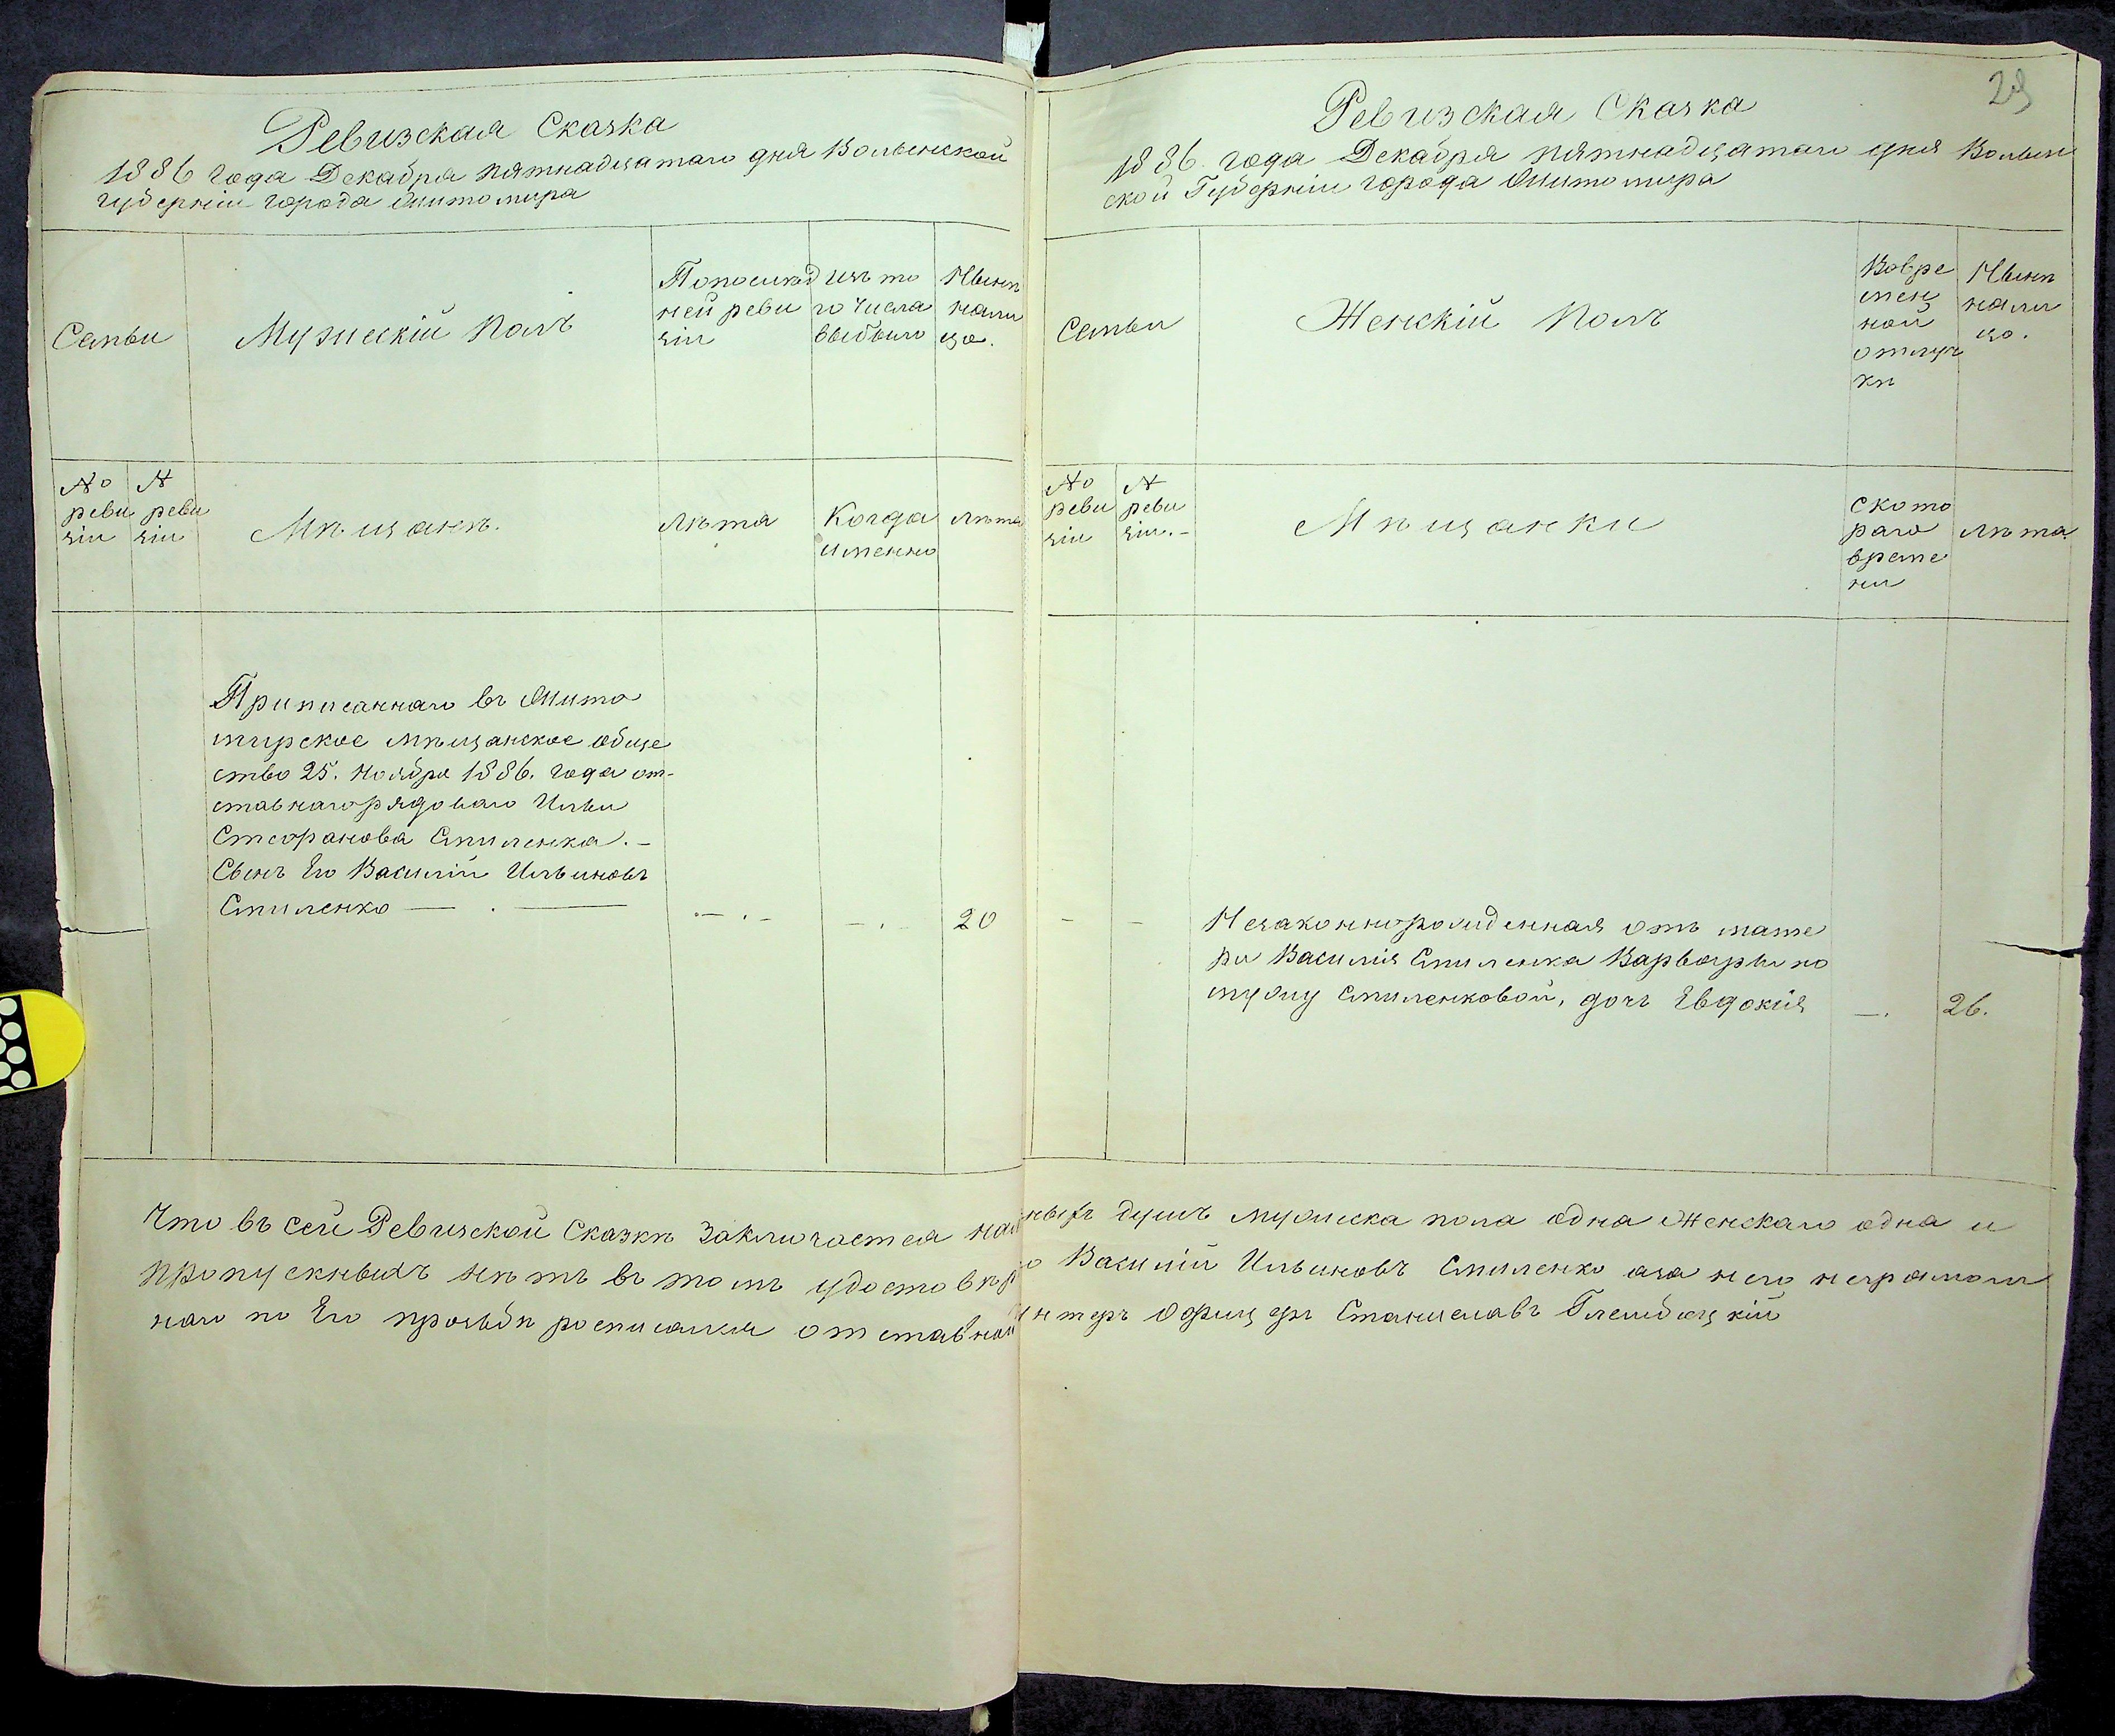 Ревизская Сказка
1886 года Декабря пятнадцатаго дня Волынской
губерніи города Житомира
Семьи
Мужескій полъ
Попослѣд
ней реви
зіи
изъ то
го числа
выбыло
Нынѣ
нали
цо.
№
реви
зіи
№
реви
зіи
Мѣщане.
Лѣта
Когда
именно
Лѣта
Приписаннаго въ Жито
мирское мѣщанское обще
ство 25. Ноября 1886. года от-
ставнаго рядоваго Ильи
Стефанова Смиленка. -
Сынъ Его Василій Ильиновъ
Смиленко — . —
20
29
Ревизская Сказка
1886 года Декабря пятнадцатаго дня Волын
ской Губерніи города Житомира
Семьи
Женскій полъ
Вовре
мен
ной
отлуч
кѣ
Нынѣ
нали
цо.
№
реви
зіи
№
реви
зіи. -
Мѣщанки
Ското
раго
време
ни
Лѣта
Незаконнорожденная отъ мате
ри Василія Смиленка Варвары по
мужу Смиленковой, дочь Евдокія
26.
Что въ сей Ревизской Сказкѣ Заключается нали
чныхъ душъ мужеска пола одна Женскаго одна и
пропускныхъ нѣтъ въ томъ удостовѣр
Василій Ильиновъ Смиленко а за него неграмот
наго по Его прозьбѣ росписался отставной
Унтеръ Офицеръ Станиславъ Глембоцкій